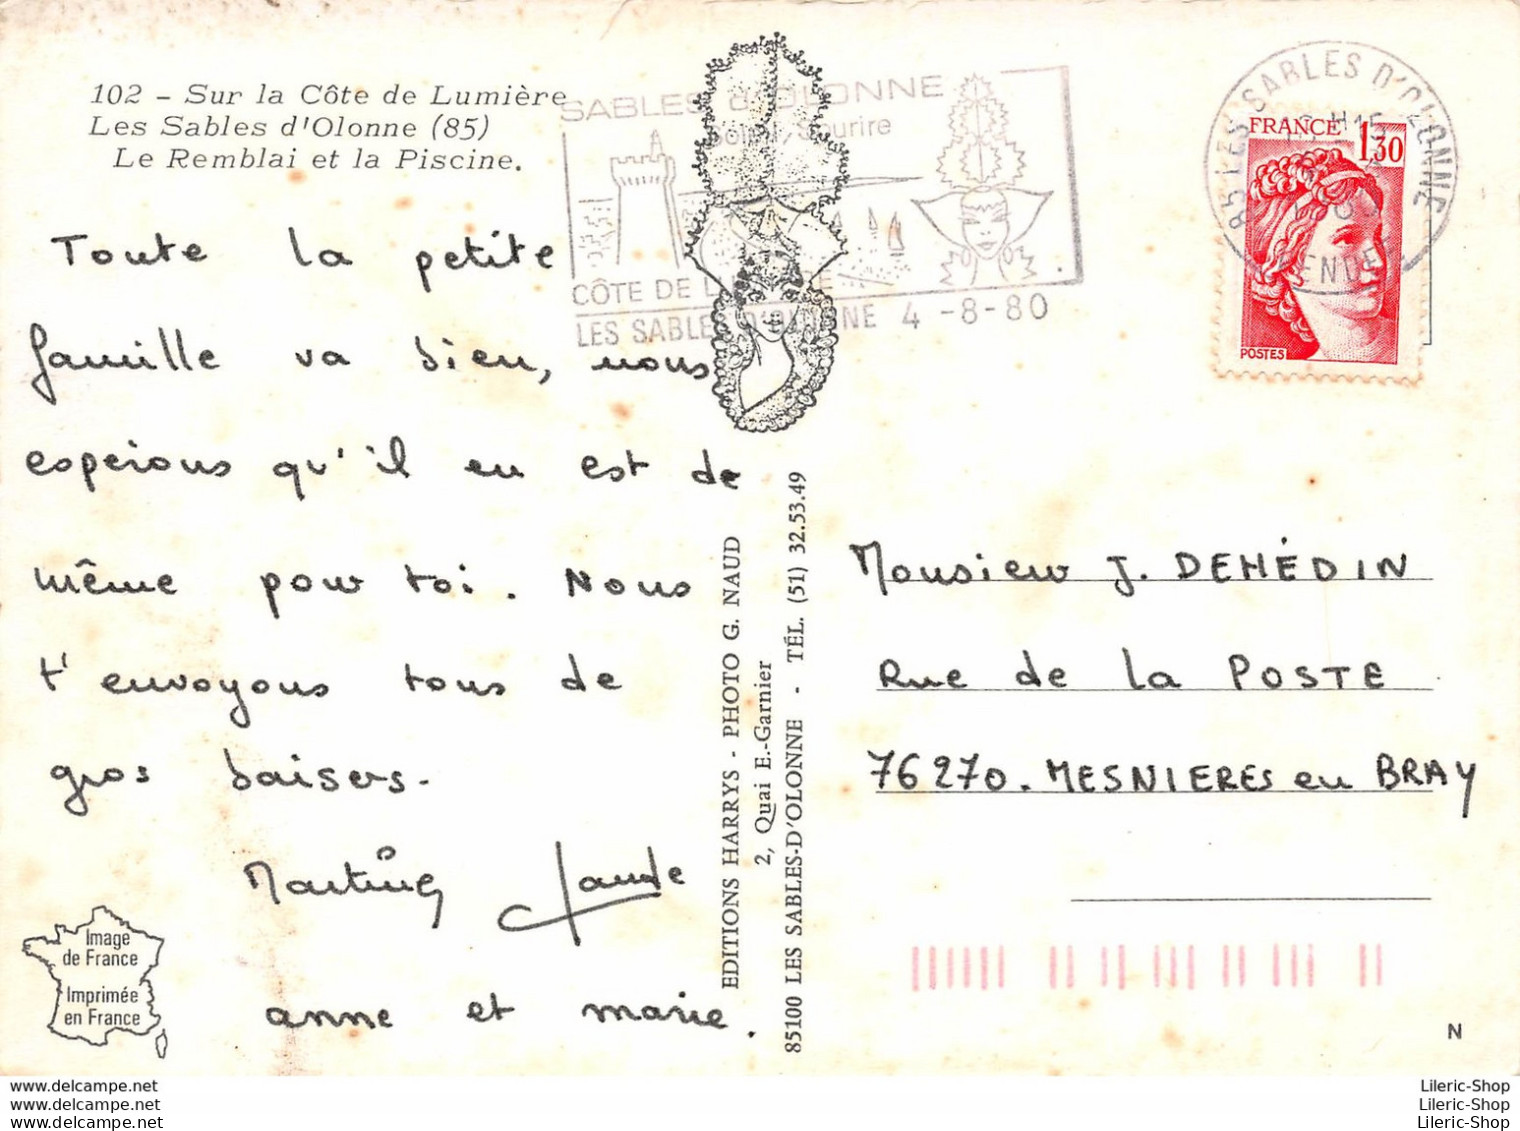 102 - Sur la Côte de Lumière
Les Sables d'Olonne (85)
Le Remblai et la Piscine.
SABLES D'OLONNE
Soleil, Sourire
CÔTE DE LUMIERE
LES SABLES D'OLONNE 4 -8-80
85 LES SABLES D'OLONNE
H15
VENDEE
FRANCE
1,30
POSTES
Toute la petite
famille va bien, nous
esperons qu'il en est de
même pour toi. Nous
t'envoyons tous de
gros baisers.
Martine Claude
anne et marie.
EDITIONS HARRYS - PHOTO G. NAUD
2, Quai E.-Garnier
85100 LES SABLES-D'OLONNE - TÉL. (51) 32.53.49
Monsieur J. DEHÉDIN
Rue de la POSTE
76270. MESNIERES en BRAY
Image
de France
Imprimée
en France
N
www.delcampe.net
www.delcampe.net
www.delcampe.net
Lileric-Shop
Lileric-Shop
Lileric-Shop